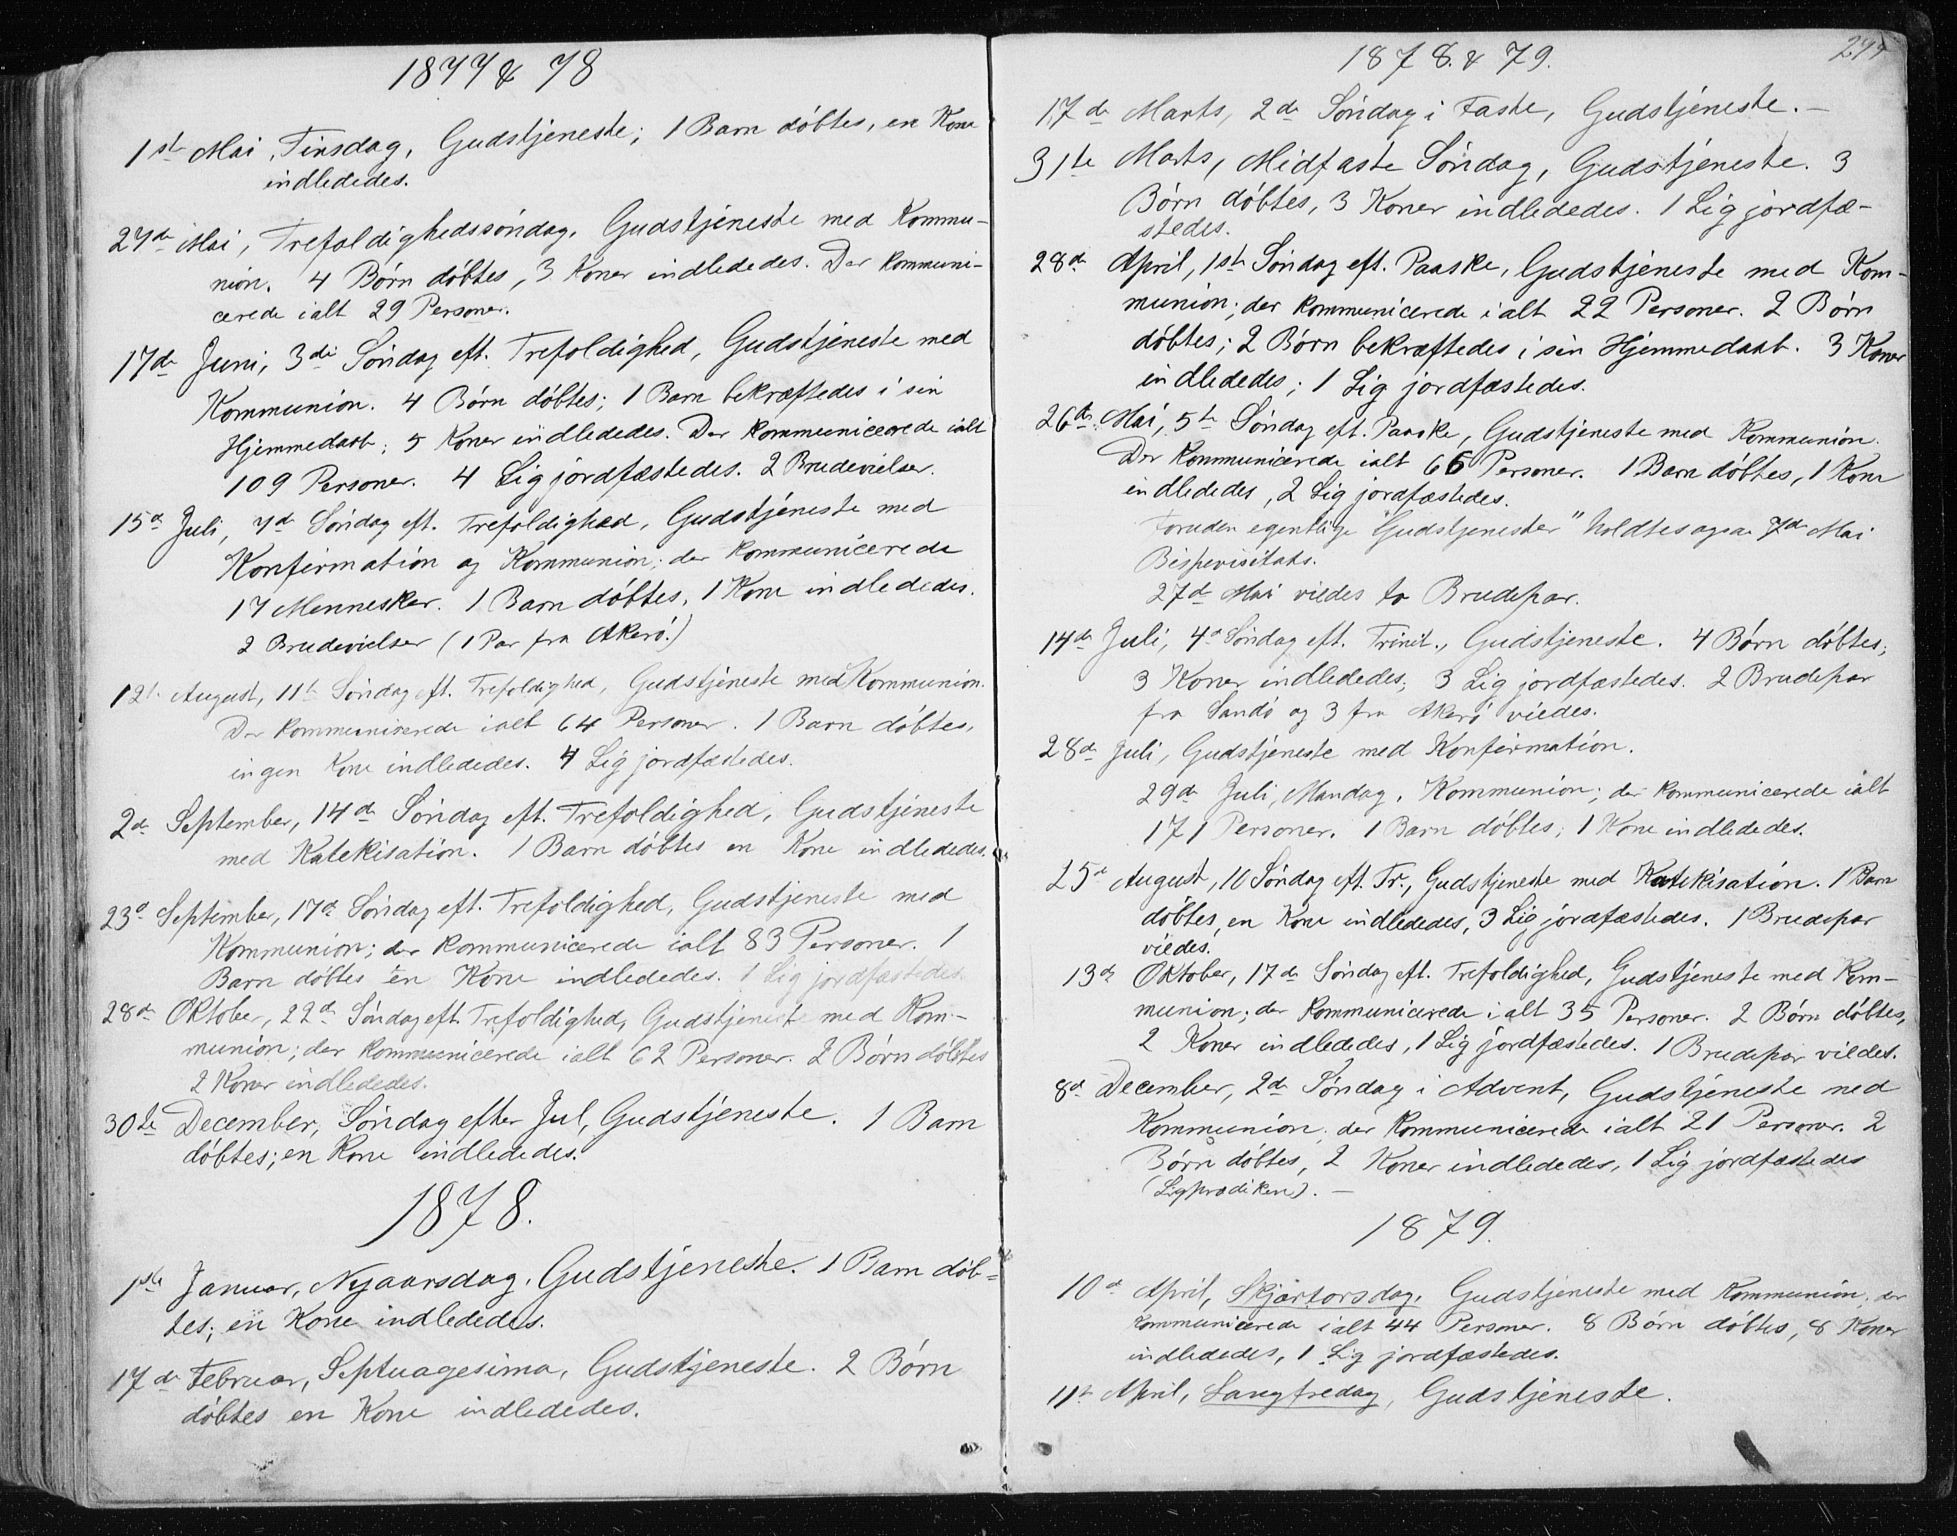 1877 & 78
1ste Mai, Tirsdag, Gudstjeneste; 1 Barn døbtes, en Kone
indlededes.
27de Mai, Trefoldighedssøndag, Gudstjeneste med Kommu-
nion. 4 Børn døbtes, 3 Koner indlededes. Der kommuni-
cerede ialt 29 Personer.
17de Juni, 3die Søndag eft. Trefoldighed, Gudstjeneste med
Kommunion. 4 Børn døbtes; 1 Barn bekræftedes i sin
Hjemmedaab; 5 Koner indlededes. Der kommunicerede ialt
109 Personer. 4 Lig jordfæstedes. 2 Brudevielser.
15de Juli, 7de Søndag eft. Trefoldighed, Gudstjeneste med
Konfirmation og Kommunion; der kommunicerede
17 Mennesker. 1 Barn døbtes, 1 Kone indlededes.
2 Brudevielser (1 Par fra Akerø.)
12te August, 11te Søndag eft. Trefoldighed, Gudstjeneste med Kommunion.
Der kommunicerede ialt 64 Personer. 1 Barn døbtes,
ingen Kone indlededes. 4 Lig jordfæstedes.
2de September, 14de Søndag eft. Trefoldighed, Gudstjeneste
med Katekisation. 1 Barn døbtes en Kone indlededes.
23de September, 17de Søndag eft. Trefoldighed, Gudstjeneste med
Kommunion; der kommunicerede ialt 83 Personer. 1
Barn døbtes en Kone indlededes. 1 Lig jordfæstedes.
28de Oktober, 22de Søndag eft. Trefoldighed, Gudstjeneste med Kom-
munion; der kommunicerede ialt 62 Personer. 2 Børn døbtes
2 Koner indlededes.
30te December, Søndag efter Jul, Gudstjeneste. 1 Barn
døbtes; en Kone indlededes.
1878.
1ste Januar, Nyaarsdag, Gudstjeneste. 1 Barn døb-
tes; en Kone indlededes.
17de Februar, Septuagesima, Gudstjeneste. 2 Børn
døbtes en Kone indlededes.
1878. & 79.
17de Marts, 2de Søndag i Faste, Gudstjeneste. -
31te Marts, Midfaste Søndag, Gudstjeneste. 3
Børn døbtes, 3 Koner indlededes. 1 Lig jordfæ-
stedes.
28de April, 1ste Søndag eft. Paaske, Gudstjeneste med Kom-
munion; der kommunicerede ialt 22 Personer. 2 Børn
døbtes; 2 Børn bekræftedes i sin Hjemmedaab. 3 Koner
indlededes; 1 Lig jordfæstedes.
26de Mai, 5te Søndag eft. Paaske, Gudstjeneste med Kommunion.
Der kommunicerede ialt 66 Personer. 1 Barn døbtes, 1 Kone
indlededes, 2 Lig jordfæstedes.
Foruden egentlige "Gudstjenester" holdtes ogsaa 7de Mai
Bispevisitats.
27de Mai viedes to Brudepar.
14de Juli, 4de Søndag eft. Trinit., Gudstjeneste. 4 Børn døbtes;
3 Koner indlededes; 3 Lig jordfæstedes. 2 Brudepar
fra Sandø og 3 fra Akerø viedes.
28de Juli, Gudstjeneste med Konfirmation.
29de Juli, Mandag, Kommunion; der kommunicerede ialt
171 Personer. 1 Barn døbtes; 1 Kone indlededes.
25de August, 10 Søndag eft. Tr., Gudstjeneste med Katekisation. 1 Barn
døbtes, en Kone indlededes, 3 Lig jordfæstedes. 1 Brudepar
viedes.
13de Oktober, 17de Søndag eft. Trefoldighed, Gudstjeneste med Kom-
munion; der kommunicerede ialt 35 Personer. 2 Børn døbtes,
2 Koner indlededes, 1 Lig jordfæstedes. 1 Brudepar viedes.
8de December, 2de Søndag i Advent, Gudstjeneste med
Kommunion; der kommunicerede ialt 21 Personer. 2
Børn døbtes, 2 Koner indlededes, 1 Lig jordfæstedes
(Ligprædiken). -
1879.
10de April, Skjærtorsdag, Gudstjeneste med Kommunion, der
kommunicerede ialt 44 Personer. 8 Børn døbtes, 8 Koner
indlededes, 1 Lig jordfæstedes.
11te April, Langfredag, Gudstjeneste.